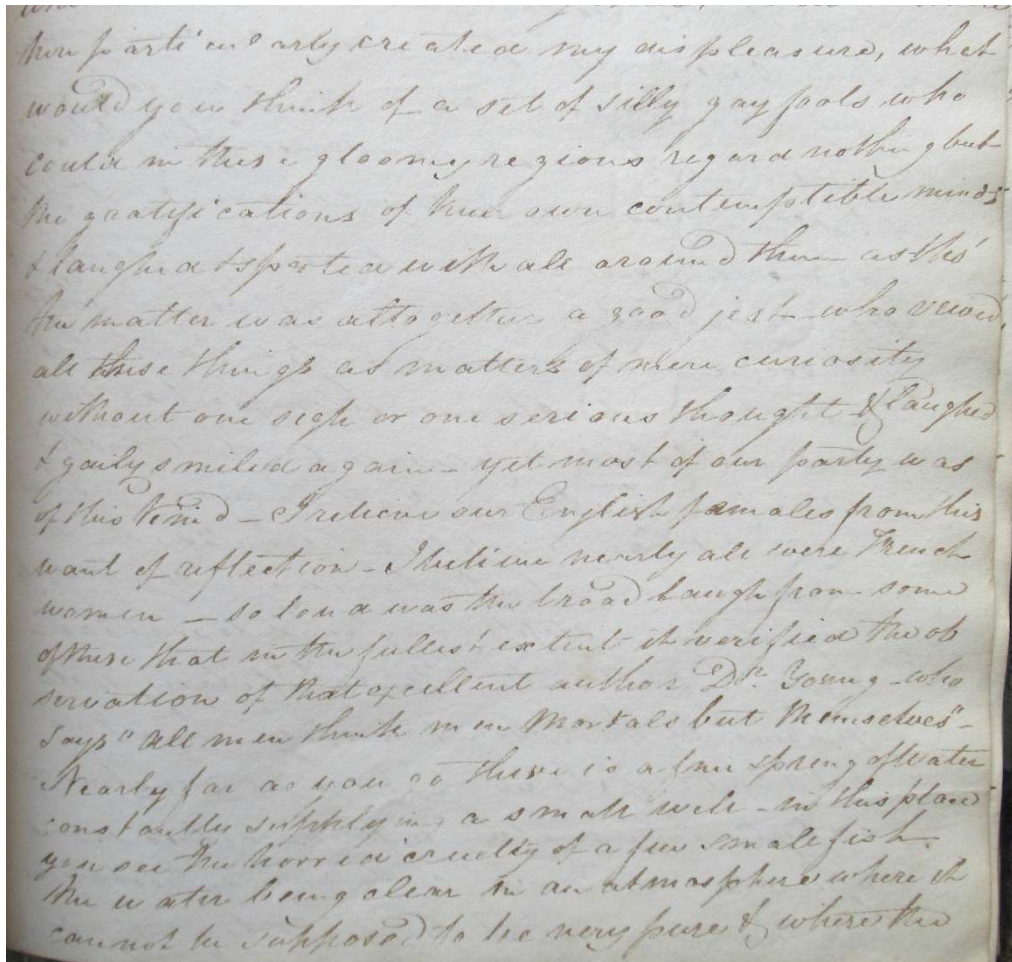 then particularly created my displeasure, what
would you think of a set of silly gay fools who
could in these gloomy regions regard nothing but
the gratifications of their own contemptible minds
& laughed & sported with all around them as tho'
the matter was altogether a good jest - who viewed
all these things as matters of mere curiosity
without one sigh or one serious thought & laughed
& gaily smiled again - yet most of our party was
of this kind - I relieve our English females from this
want of reflection - I believe nearly all were French
women - so loud was the broad laugh from some
of these that in the fullest extent it verified the ob
servation of that excellent author Dr. Young - who
says "all men think men Mortals but themselves" -
Nearly far as you go there is a fine spring of Water
constantly supplying a small well - in this place
you see the horrid cruelty of a few small fish.
the water being clear in an atmosphere where it
cannot be supposed to be very pure & where the